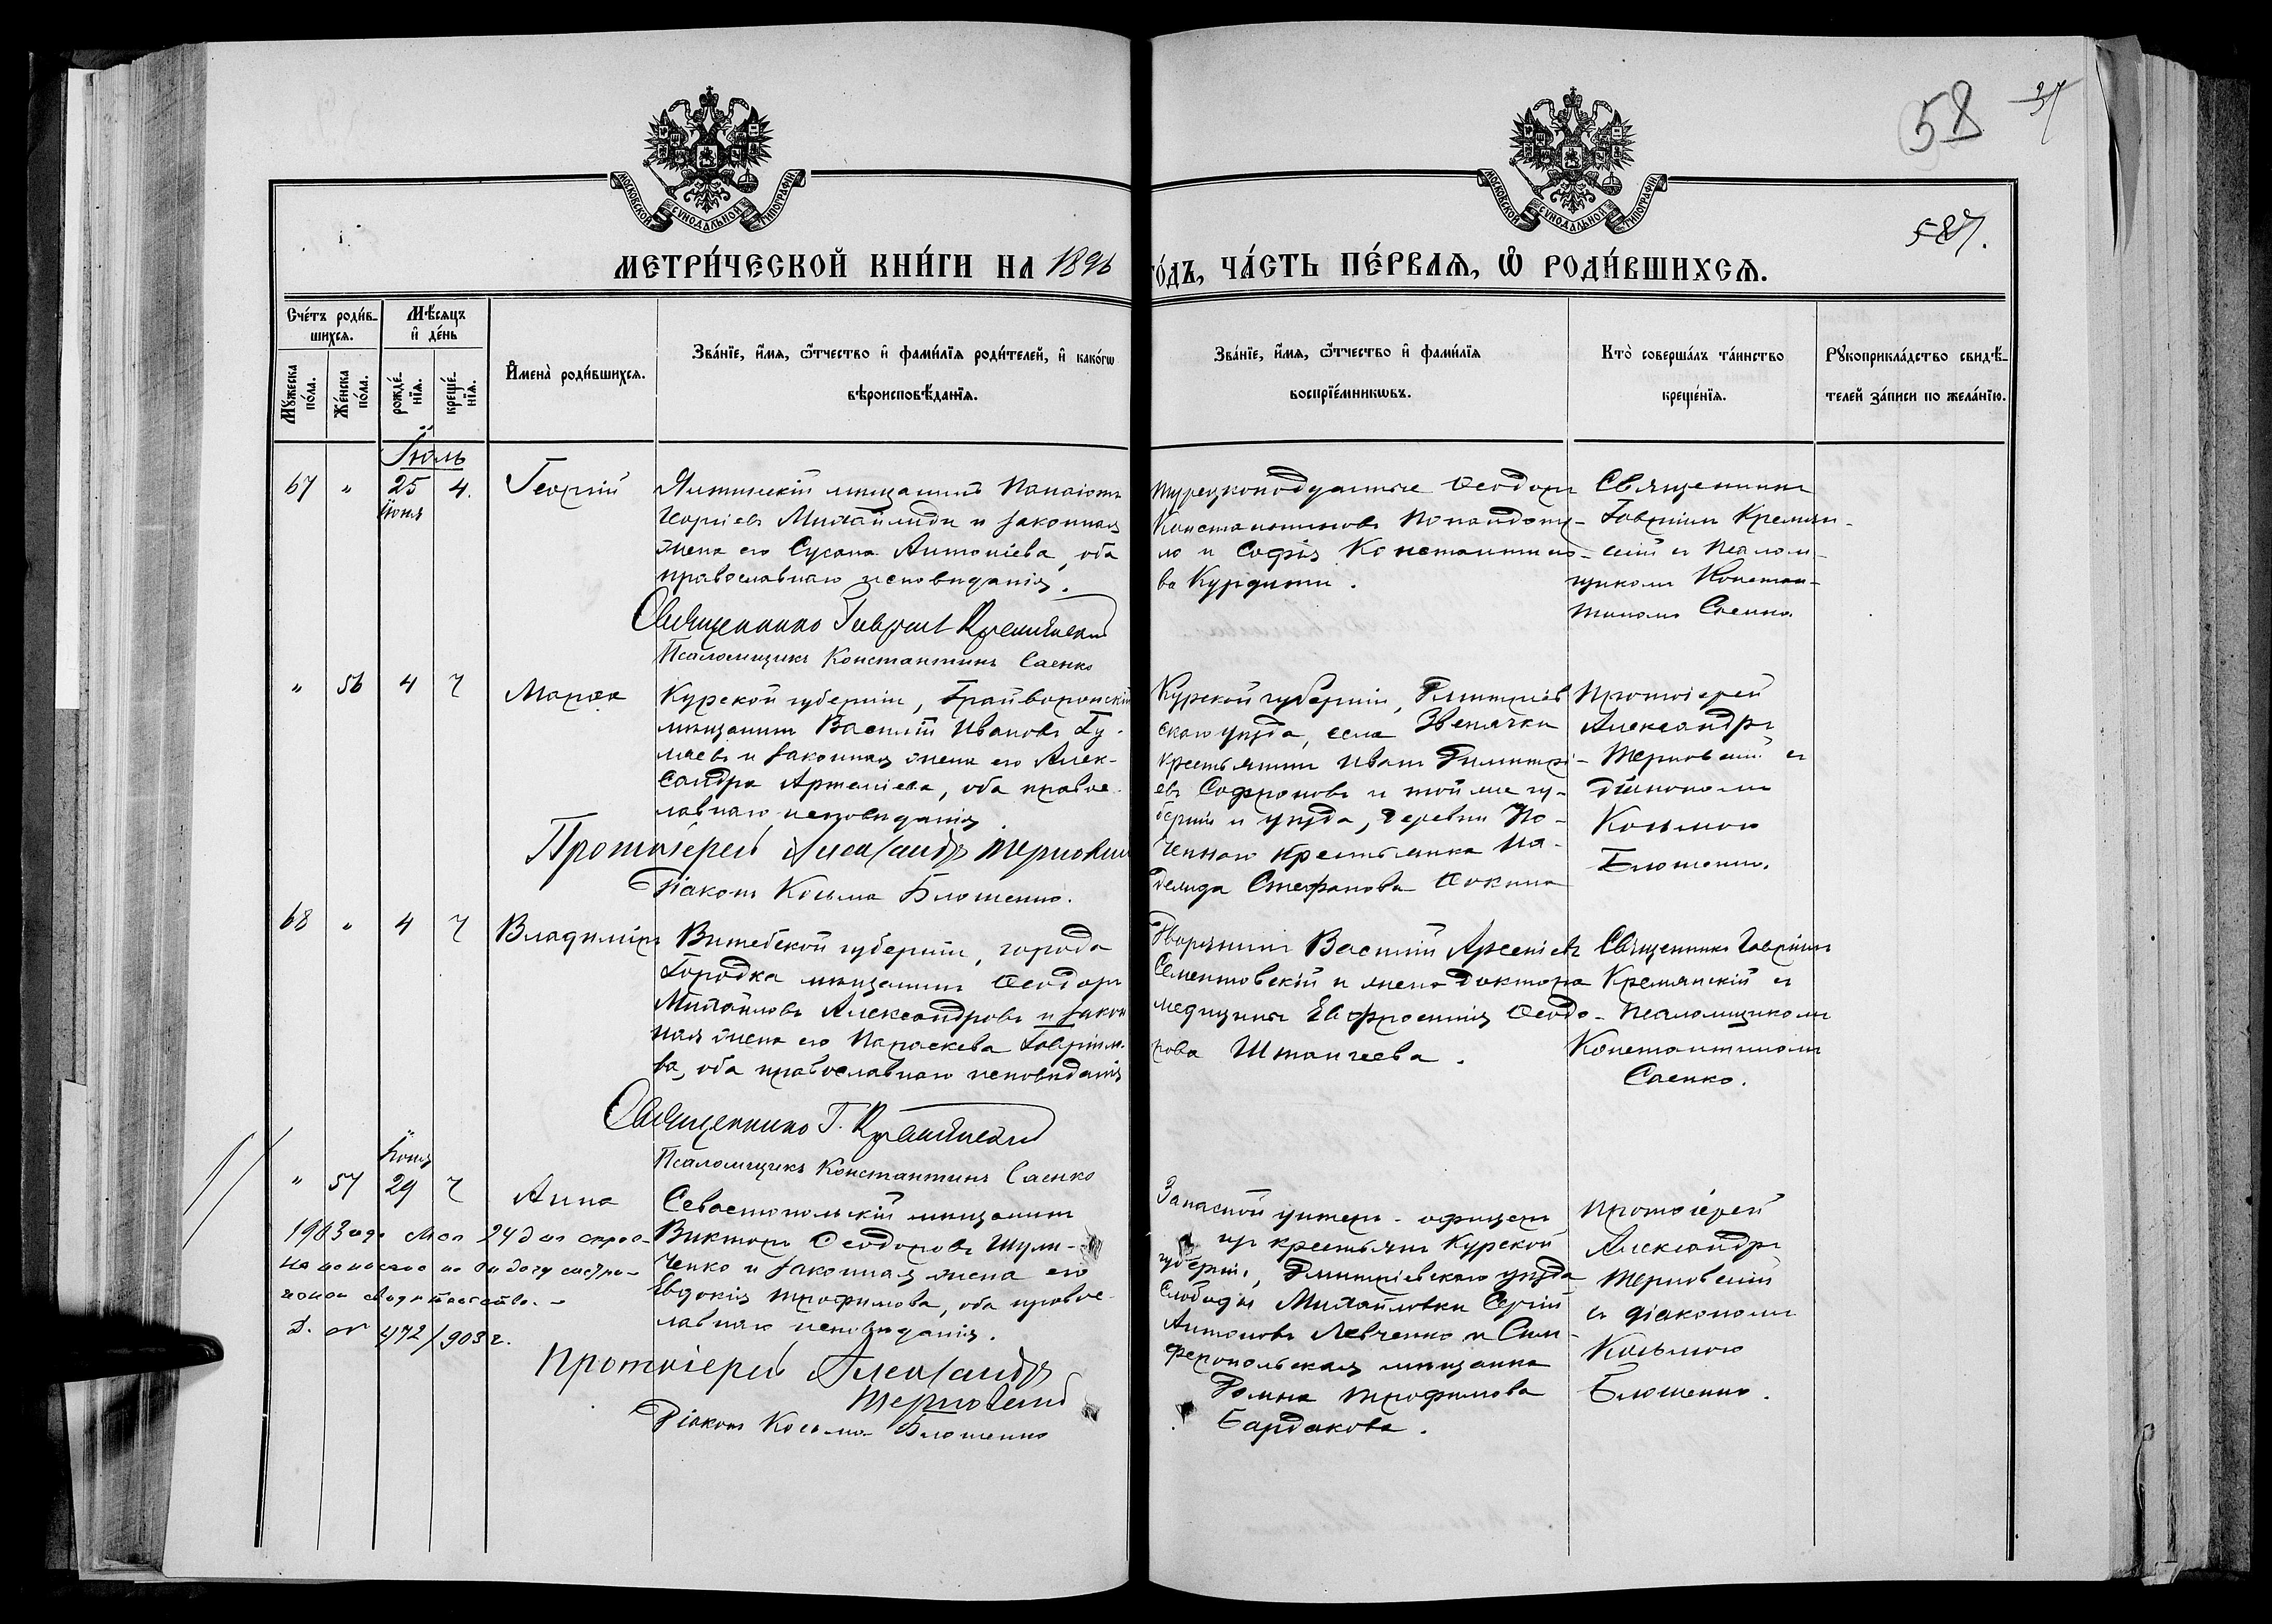 58
27
МОСКОВСКОЙ СѴНОДАЛЬНОЙ ТИПОГРАФІИ
МОСКОВСКОЙ СѴНОДАЛЬНОЙ ТИПОГРАФІИ
587.
МЕТРИ́ЧЕСКОЙ КНИ́ГИ НА 1896
ГО́ДЪ, ЧА́СТЬ ПЕ́РВАЯ, Ѡ РОДИ́ВШИХСѦ.
Сче́тъ роди́в-
шихсѧ.
Мꙋ́жеска по́ла.
Же́нска по́ла.
Мѣ́сяцъ
и де́нь
рожде́нїѧ.
креще́нїѧ.
И҆мена̀ роди́вшихсѧ.
Зва́нїе, и҆́мѧ, ѻ҆́тчество и҆ фами́лїѧ роди́телей, и҆ како́гѡ
вѣроисповѣ́данїѧ.
Зва́нїе, и҆́мѧ, ѻ҆́тчество и҆ фами́лїѧ
воспрїе́мникѡвъ.
Кто̀ соверша́лъ та́инство
креще́нїѧ.
Рꙋкоприкла́дство свидѣ́-
телей за́писи по жела́нїю.
Іюль
67 " 25 Іюня 4. Георгій
Ялтинскій мѣщанинъ Панаіотъ
Георгіевъ Михайлиди и законная
жена его Сусана Антоніева, оба
православнаго исповѣданія.
Священникъ Гавріилъ Кремянскій
Псаломщикъ Константинъ Саенко
турецкоподданные Ѳеодоръ
Константиновъ Попандопу-
ло и Софія Константино-
ва Курдипи.
Священникъ
Гавріилъ Кремян-
скій съ Псалом-
щикомъ Констан-
тиномъ Саенко.
" 56 4 7 Марѳа
Курской губерніи, Грайворонскій
мѣщанинъ Василій Ивановъ Гу-
маевъ и законная жена его Алек-
сандра Артеміева, оба право-
славнаго исповѣданія
Протоіерей Александръ Терновскій
Діаконъ Косьма Блошенко.
Курской губерніи, Дмитріев-
скаго уѣзда, села Звенячки
крестьянинъ Иванъ Димитрі-
евъ Софроновъ и той же гу-
берніи и уѣзда, деревни По-
ченной крестьянка На-
делида Стефанова Ѳокина
Протоіерей
Александръ
Терновскій съ
діакономъ
Косьмою
Блошенко.
68 " 4 7 Владиміръ
Витебской губерніи, города
Городка мѣщанинъ Ѳеодоръ
Михайловъ Александровъ и закон
ная жена его Параскева Гавріило-
ва, оба православнаго исповѣданія
Священникъ Г. Кремянскій
Псаломщикъ Константинъ Саенко
Дворянинъ Василій Арсеніевъ
Сементовскій и жена доктора
медицины Евфросинія Ѳеодо-
рова Штангеева.
Священникъ Гавріилъ
Кремянскій съ
Псаломщикомъ
Константиномъ
Саенко.
" 57 Іюня 29 7 Анна
Севастопольскій мѣщанинъ
Викторъ Ѳеодоровъ Шуль-
ченко и законная жена его
Евдокія Трофимова, оба право-
славнаго исповѣданія.
Протоіерей Александръ
Терновскій
Діаконъ Косьма Блошенко
1903 года Мая 24 дня
свидѣтельство.
472/903 г.
Запасной унтеръ-офицеръ
изъ крестьянъ Курской
губерніи, Дмитріевскаго уѣзда
Слободы Михайловки Сергій
Антоновъ Левченко и Сим-
феропольская мѣщанка
Домна Трофимова
Бардакова.
Протоіерей
Александръ
Терновскій
съ діакономъ
Косьмою
Блошенко.